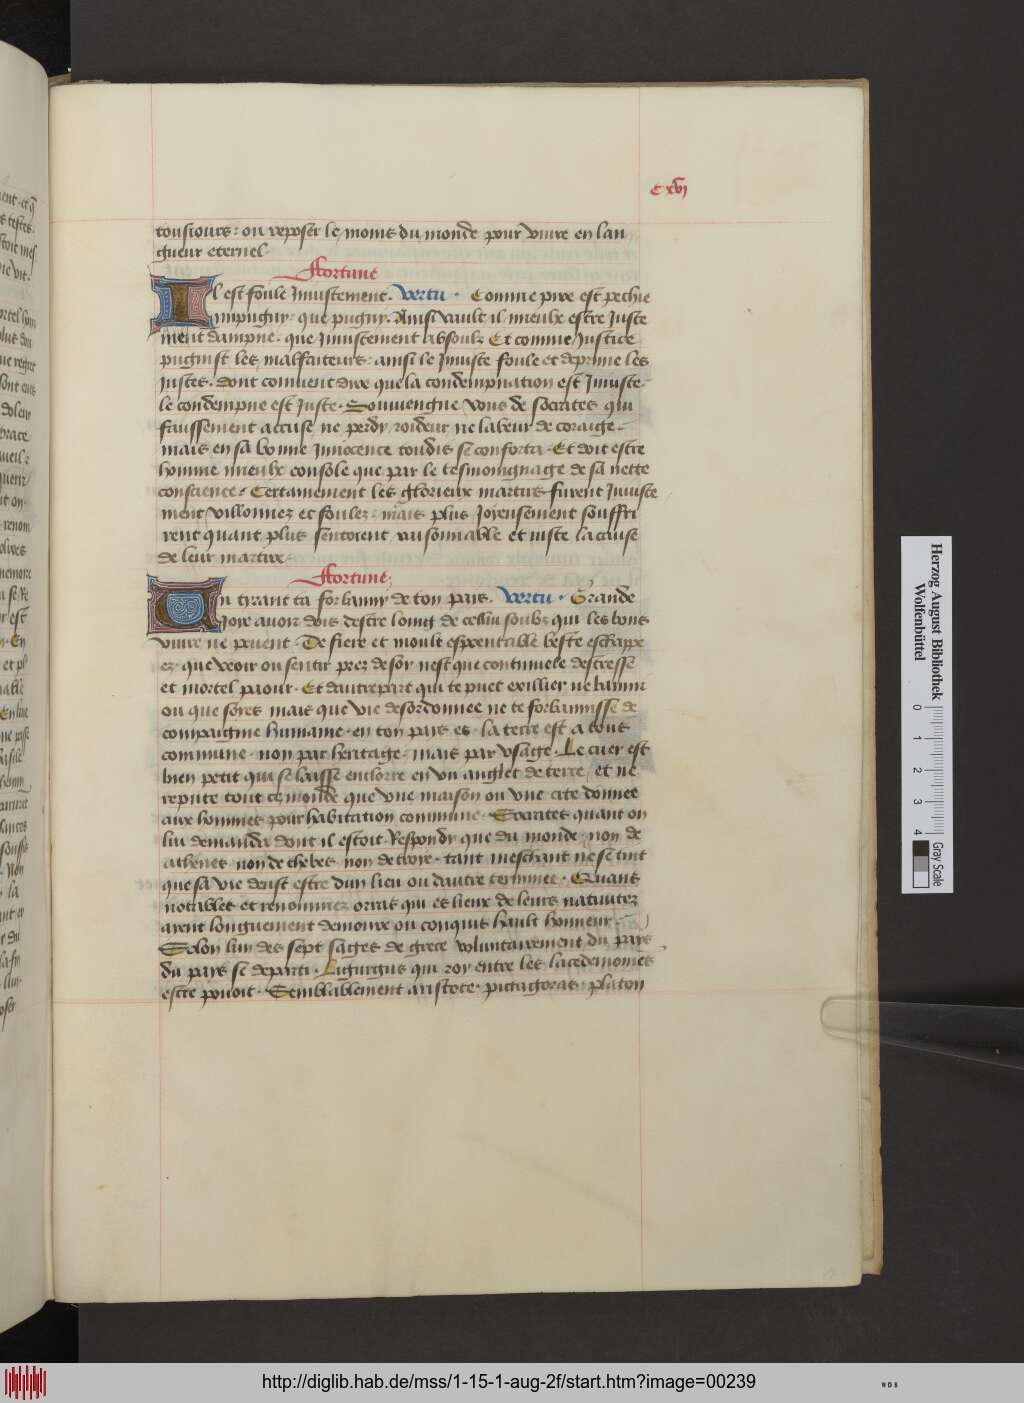 C xvj
tousiours : ou reposer le moins du monde pour viure en lan
gueur eternel.
Fortune
Il est foule Jniustement. Vertu . Comme pire est pechie
impugny . que pugny . Ainsi vault il mieulx estre Juste
ment dampne . que Jniustement absoulz Et comme Justice
pugnist les malfaiteurs . ainsi le Jniuste foule et deprime les
Justes . dont conuient dire que la condempnation est Jniuste .
le condempne est Juste . Souuengne vous de Socrates qui
faussement accuse ne perdy roideur ne labeur de coraige .
mais en sa bonne Jnnocence toudis se conforta . Et doit estre
homme mieulx console que par le tesmoingnage de sa nette
conscience . Certainement les glorieux martirs furent Jniuste
ment villonnez et foulez . mais plus Joyeusement souffri
rent quant plus sentoient raisonnable et iuste la cause
de leur martire .
Fortune
Un tyrant ta forbanny de ton pais . Vertu . Grande
Joye auoir dois destre loing de cellui soubz qui les bons
viure ne peuent . De fiere et moult espeentable beste eschappe
ez . que veoir ou sentir prez de soy nest que continuele destresse
et mortel paour . Et dautrepart qui te puet exillier ne bannir
ou que soies mais que vie desordonnee ne te forbannisse de
compaignie humaine . en ton pays es . la terre est a tous
commune . non par heritage . mais par vsage . Le cuer est
bien petit qui se laisse enclorre en vn anglet de terre . et ne
repute tout ce monde que vne maison ou vne cite donnee
aux hommes pour habitation commune . Socrates quant on
lui demanda dont il estoit . Respondy que du monde . non de
athenes . non de thebes . non de troye . tant meschant ne se tint
que sa vie deust estre dun lieu ou dautre terminee . Quans
notables et renommez orras qui es lieux de leurs natiuitez
ayent longuement demoure ou conquis hault honneur .
Solon lun des sept sages de grece voluntairement du pays
du pays se departi . Ligurgus qui roy entre les lacedemoniens
estre pouoit . Semblablement aristote . pictagoras . platon
Herzog August Bibliothek
Wolfenbüttel
0 1 2 3 4
Gray Scale
http://diglib.hab.de/mss/1-15-1-aug-2f/start.htm?image=00239
WDB